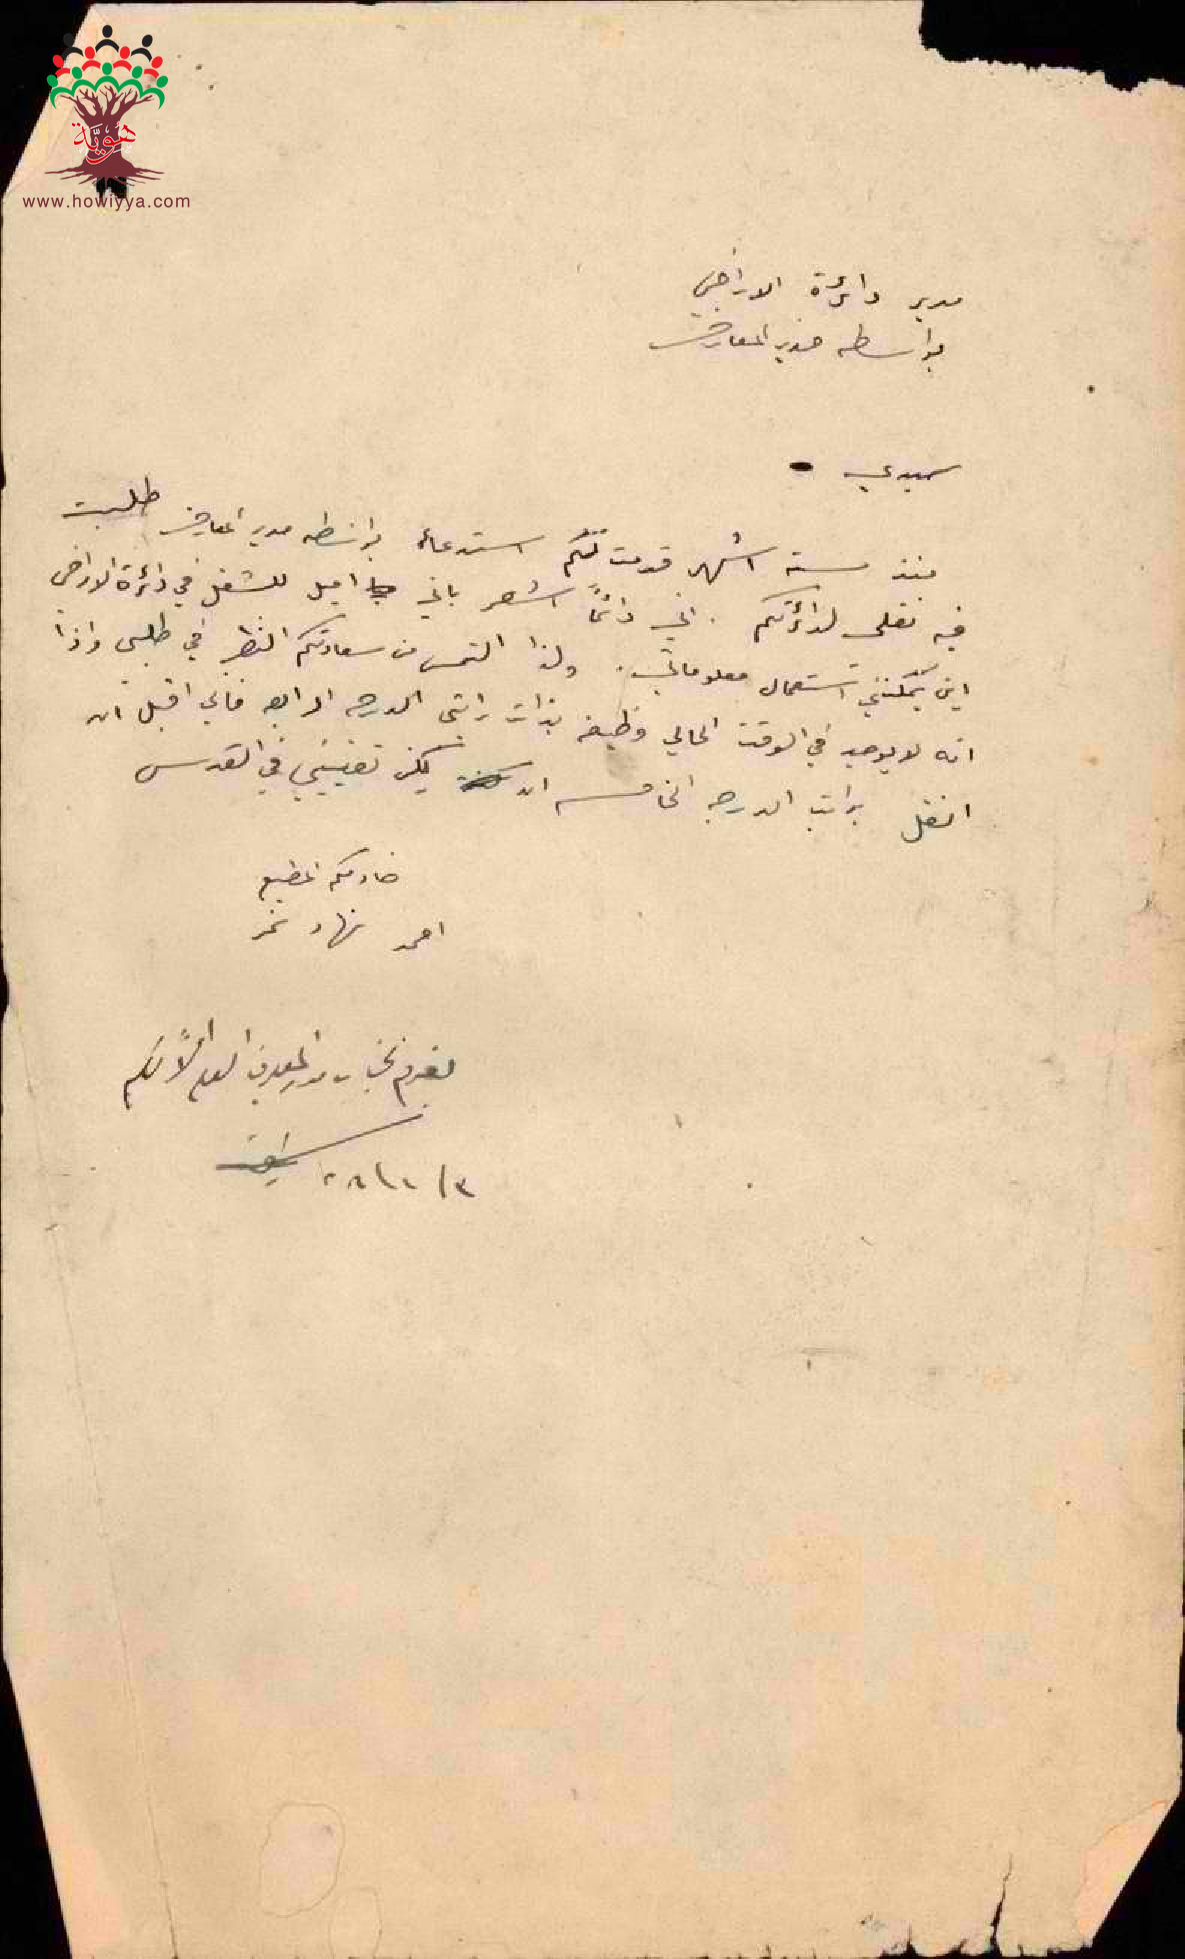 هوية
www.howiyya.com
مدير دائرة الاراضي
بواسطه مدير المعارف
سيدي
منذ ستة اشهر قدمت لكم استدعاء بواسطه مدير المعارف طلبت
فيه نقلي لدائرتكم . اني دائماً اشعر باني اميل للشغل في دائرة الاراضي
اين يمكنني استعمال معلوماتي . ولذا التمس من سعادتكم النظر في طلبي واذا
انه لا يوجد في الوقت الحالي وظيفه بذات راتبي الدرجه الرابعه فاني اقبل ان
انقل براتب الدرجه الخامسه ان يمكن تعييني في القدس
خادمكم المطيع
احمد نهاد نمر
يقدم مدير المعارف العام